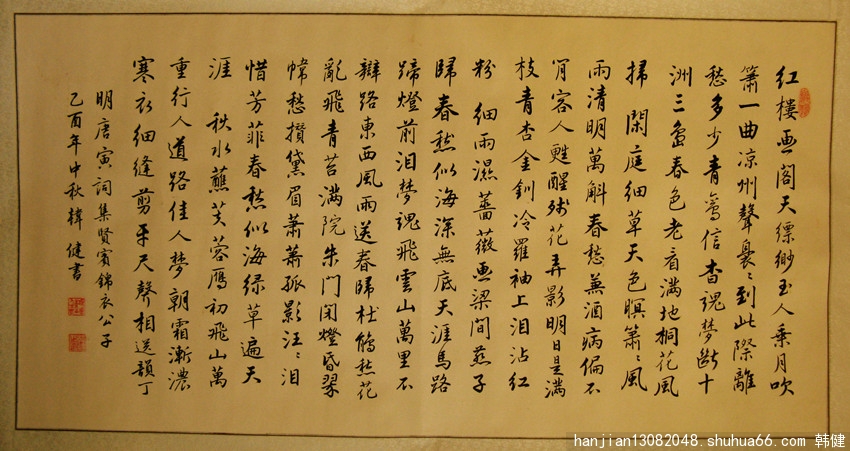 红樓画閣天缥缈玉人乗月吹
箫一曲凉州聲裊〻到此際離
愁多少青鸞信杳魂夢断十
洲三岛春色老看满地桐花風
掃　閑庭细草天色暝箫〻風
雨清明萬斛春愁兼酒病偏不
肯容人甦醒残花弄影明日是满
枝青杏金釧冷羅袖上泪沾红
粉　细雨濕蔷薇画梁间燕子
歸春愁似海深無底天涯馬路
蹄燈前泪梦魂飛雲山萬里不
辭路東西風雨送春歸杜鵑愁花
亂飛青苔满院朱門闭燈昏翠
幃愁攢黛眉萧萧孤影汪〻泪
惜芳菲春愁似海绿草遍天
涯　秋水蘸芙蓉雁初飛山萬
重行人道路佳人梦朝霜漸濃
寒衣细縫剪牙尺聲相送韻丁
明唐寅詞集賢賓錦衣公子
乙酉年中秋韓健書
hanjian13082048.shuhua66.com 韩健